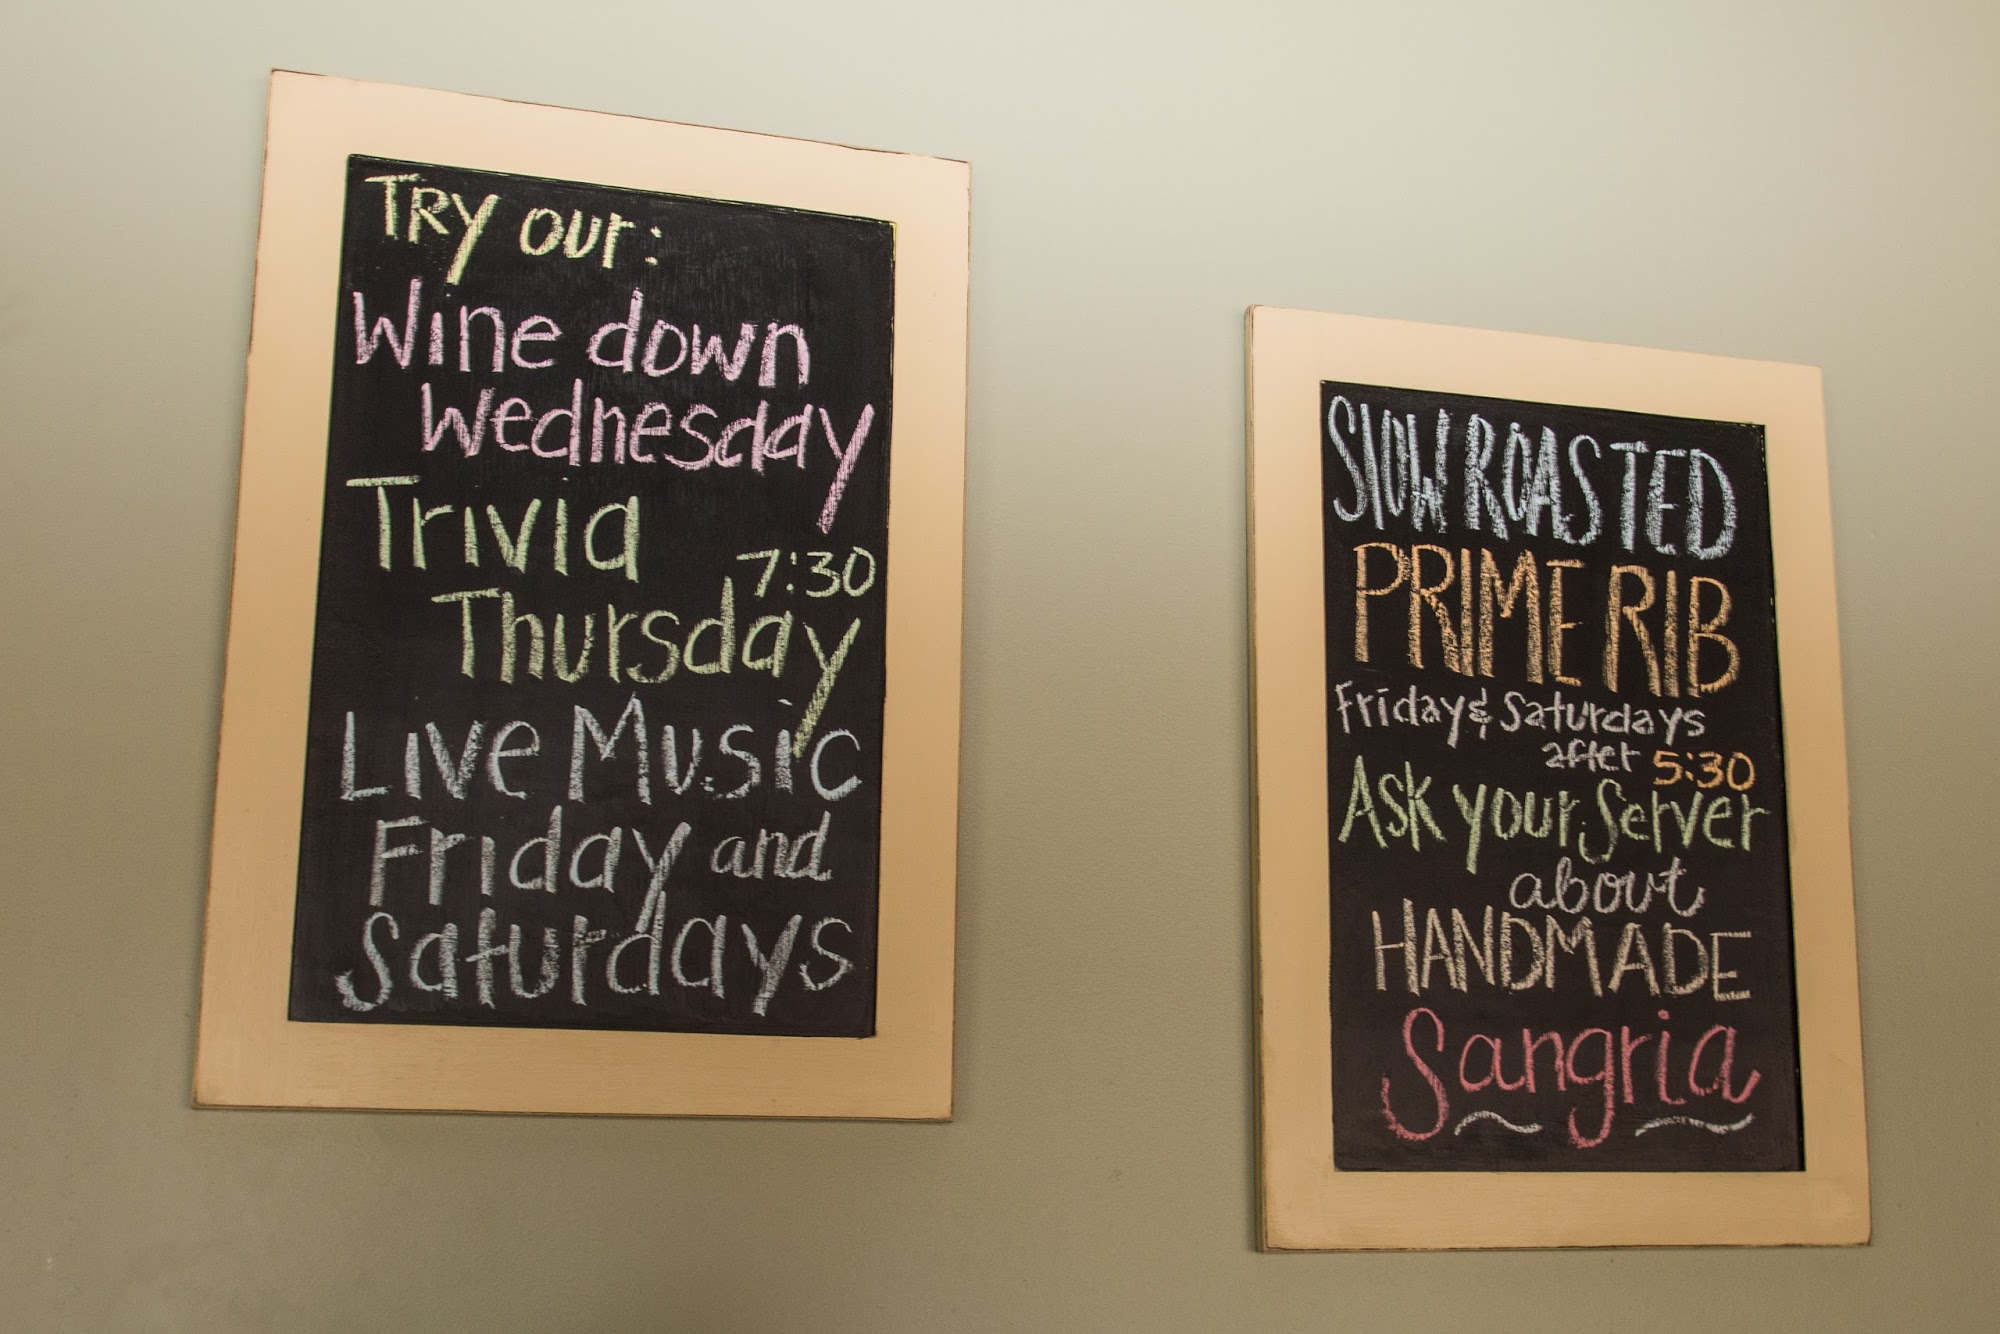 TRY our:
Wine down
Wednesday
Trivia
7:30
Thursday
Live Music
Friday and
Saturdays
Slow ROASTED
PRIME RIB
Friday & Saturdays
after 5:30
Ask your Server
about
HANDMADE
Sangria